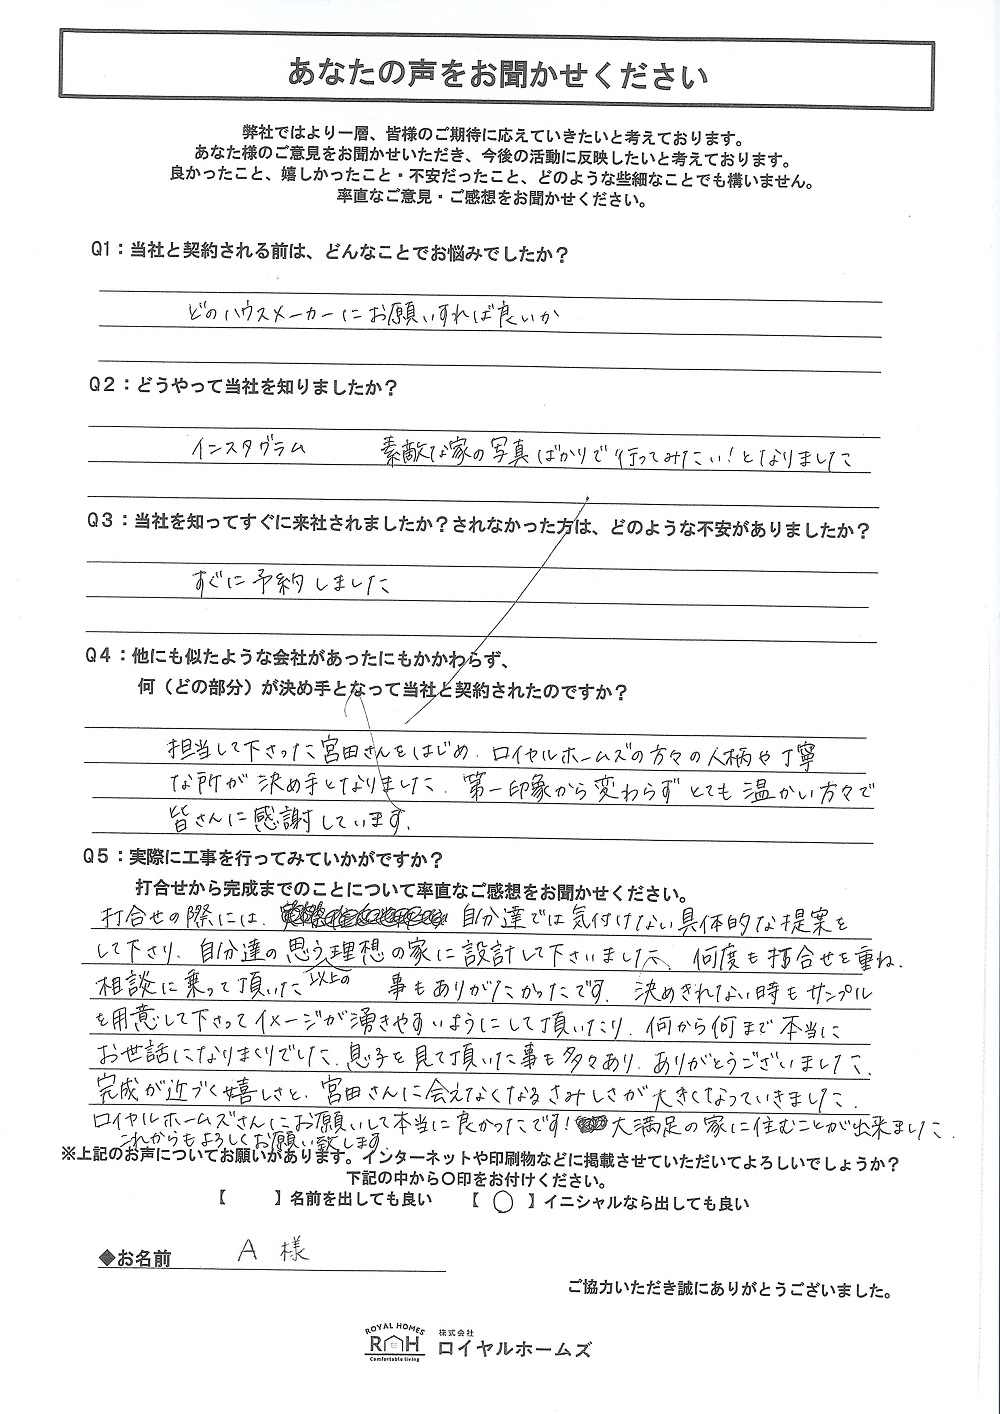 あなたの声をお聞かせください
弊社ではより一層、皆様のご期待に応えていきたいと考えております。
あなた様のご意見をお聞かせいただき、今後の活動に反映したいと考えております。
良かったこと、嬉しかったこと・不安だったこと、どのような些細なことでも構いません。
率直なご意見・ご感想をお聞かせください。
Q1：当社と契約される前は、どんなことでお悩みでしたか？
どのハウスメーカーにお願いすれば良いか
Q2：どうやって当社を知りましたか？
インスタグラム 素敵な家の写真ばかりで行ってみたい！となりました
Q3：当社を知ってすぐに来社されましたか？されなかった方は、どのような不安がありましたか？
すぐに予約しました
Q4：他にも似たような会社があったにもかかわらず、
何（どの部分）が決め手となって当社と契約されたのですか？
担当して下さった宮田さんをはじめ、ロイヤルホームズの方々の人柄や丁寧
な所が決め手となりました。第一印象から変わらずとても温かい方々で
皆さんに感謝しています。
Q5：実際に工事を行ってみていかがですか？
打合せから完成までのことについて率直なご感想をお聞かせください。
打合せの際には、自分達では気付けない具体的な提案を
して下さり、自分達の思う以上の理想の家に設計して下さいました。何度も打合せを重ね、
相談に乗って頂いた事もありがたかったです。決めきれない時もサンプル
を用意して下さってイメージが湧きやすいようにして頂いたり、何から何まで本当に
お世話になりまくりでした。息子を見て頂いた事も多々あり、ありがとうございました。
完成が近づく嬉しさと、宮田さんに会えなくなるさみしさが大きくなっていきました。
ロイヤルホームズさんにお願いして本当に良かったです！大満足の家に住むことが出来ました。
これからもよろしくお願い致します
※上記のお声についてお願いがあります。インターネットや印刷物などに掲載させていただいてよろしいでしょうか？
下記の中から〇印をお付けください。
【　　】名前を出しても良い　【 〇 】イニシャルなら出しても良い
◆お名前 A 様
ご協力いただき誠にありがとうございました。
ROYAL HOMES
RH
Comfortable living
株式会社
ロイヤルホームズ